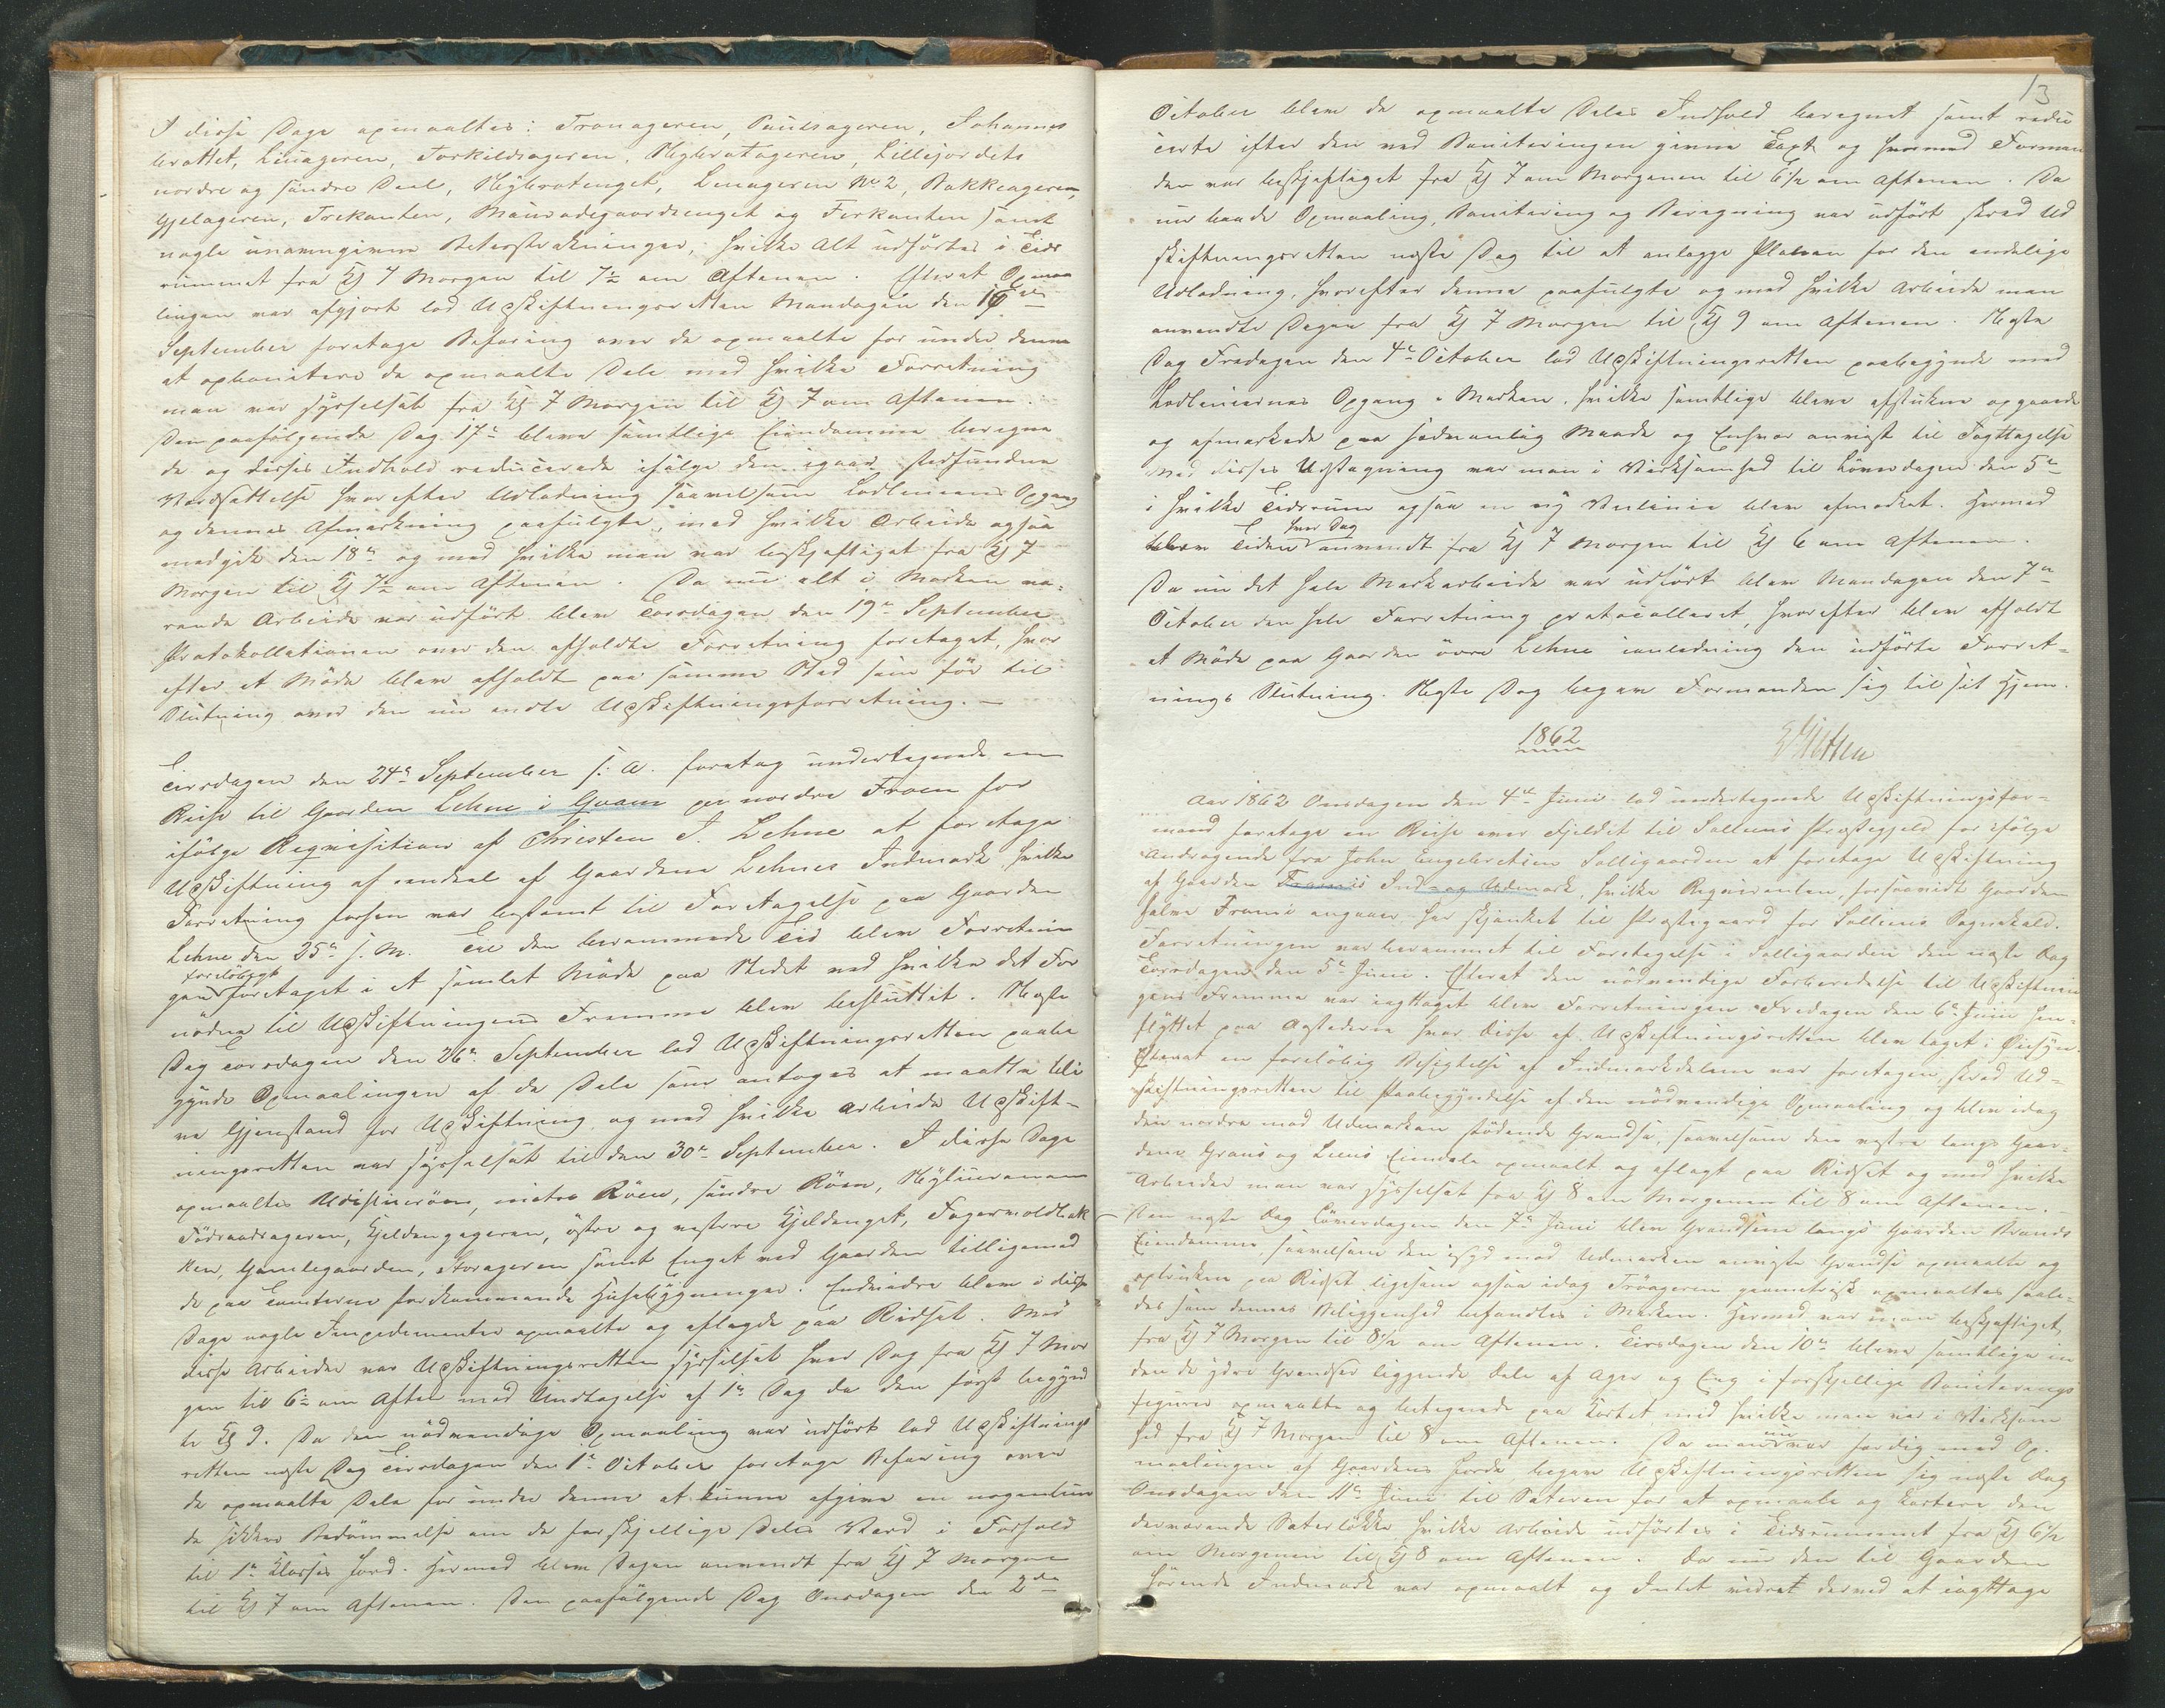 I disse Dage opmaaltes: Tronageren, Paulsageren, Johannes
brottet, Linageren, Torkildsageren, Nybrotageren, Lillejordets
nordre og søndre Deel, Nybrotenget, Linageren No 2, Bakkeageren,
Gjelageren, Trekanten, Maurodegaardsenget og Firkanten samt
nogle unavngivne Beterstrækninger, hvilke Alt udførtes i Tids
rummet fra Kl 7 Morgen til 7½ om Aftenen. Efterat Opmaa
lingen var afgjort lod Udskiftningsretten Mandagen den 16de
September foretage Befaring over de opmaalte for under denne
at opbonitere de opmaalte Dele med hvilke Forretning
man var sysselsat fra Kl 7 Morgen til Kl 7 om Aftenen.
Den paafølgende Dag 17de bleve samtlige Eiendomme beregne
de og disses Indhold reducerede ifølge den igaar stedfundne
Værdsættelse hvorefter Udlodning saavelsom Lodliniens Opgang
og dennes Afmærkning paafulgte, med hvilke Arbeide ogsaa
medgik den 18de og med hvilke man var beskjæftiget fra Kl 7
Morgen til Kl 7½ om Aftenen. Da nu alt i Marken væ-
rende Arbeide var udført blev Torsdagen den 19de September
Protokollationen over den afholdte Forretning foretaget, hvor
efter et Møde blev afholdt paa samme Sted som før til
Slutning over den nu endte Udskiftningsforretning.—
Tirsdagen den 24de September s: A. foretog undertegnede en
Reise til Gaarden Lehne i Qvam pr nordre Froen for
ifølge Reqvisition af Christen J. Lehne at foretage
Udskiftning af endeel af Gaardene Lehnes Indmark, hvilke
Forretning forhen var bestemt til Foretagelse paa Gaarden
Lehne den 25de s. M. Til den berammede Tid blev Forretnin
gen foreløbigt foretaget i et samlet Møde paa Stedet ved hvilke det For
nødne til Udskiftningens Fremme blev besluttet. Næste
Dag Torsdagen den 26de September lod Udskiftningsretten paabe
gynde Opmaalingen af de Dele som antoges at maatte bli
ve Gjenstand for Udskiftning, og med hvilke Arbeide Udskift-
ningsretten var sysselsat til den 30te September. I disse Dage
opmaaltes, nietre Røen, søndre Røen,
Fødraadsageren, Kjeldengageren, østre og vestre Kjeldenget,
ken, Gamlegaarden, Storageren samt Enget ved Gaarden tilligemed
de paa Tomterne forekommende Husebygninger. Endvidere blev i disse
Dage nogle Impedimenter opmaalte og aflagde paa Ridset. Med
disse Arbeider var Udskiftningsretten sysselsat hver Dag fra Kl 7 Mor
gen til 6½ om Aften med Undtagelse af 1ste Dag da den først begynd
te Kl 9. Da den nødvendige Opmaaling var udført lod Udskiftnings
retten næste Dag Tirsdagen den 1ste October foretage Befaring over
de opmaalte Dele for under denne at kunne afgive en nogenlun
de sikker Bedømmelse om de forskjellige Deles Værd i Forhold
til 1ste Klasses Jord. Hermed blev Dagen anvendt fra Kl 7 Morgen
til Kl 7 om Aftenen. Den paafølgende Dag Onsdagen den 2den
13
October blev de opmaalte Deles Indhold beregnet samt redu
certe efter den ved Boniteringen givne Taxt og hvormed Forman
den var beskjæftiget fra Kl 7 om Morgenen til 6½ om Aftenen. Da
nu baade Opmaaling, Bonitering og Beregning var udført skred Ud
skiftningsretten næste Dag til at anlægge Planen for den endelige
Udlodning, hvorefter denne paafulgte og med hvilke Arbeide man
anvendte Dagen fra Kl 7 Morgen til Kl 9 om Aftenen. Næste
Dag Fredagen den 4de October lod Udskiftningsretten paabegynde med
Lodliniernes Opgang i Marken, hvilke samtlige bleve afstukne opgaaede
og afmærkede paa sædvanlig Maade og Enhver anviist til Iagttagelse
Med disses Udstagning var man i Virksomhed til Løverdagen den 5te
i hvilke Tidsrum ogsaa en ny Veilinie blev afmærket. Hermed
blev Tiden hver Dag anvendt fra Kl 7 Morgen til Kl 6 om Aftenen.
Da nu det hele Markarbeide var udført blev Mandagen den 7de
October den hele Forretning protocolleret, hvorefter blev afholdt
et Møde paa Gaarden øvre Lehne ianledning den udførte Forret-
nings Slutning. Næste Dag begav Formanden sig til sit Hjem.
1862
Aar 1862 Onsdagen den 4de Juni lod undertegnede Udskiftningsfor-
mand foretage en Reise over Fjeldet til Solliens Præstegjeld for ifølge
Andragende fra John Engebretsen Solliegaarden at foretage Udskiftning
af Gaarden Tramis Ind- og Udmark, hvilke Reqvirenten, forsaavidt Gaarden
halve angaaer, har skjænket til Præstegaard for Solliens Sognekald.
Forretningen var berammet til Foretagelse i Solliegaarden den næste Dag
Torsdagen den 5te Juni. Efterat den nødvendige Forberedelse til Udskiftnin
gens Fremme var iagttaget blev Forretningen Fredagen den 6te Juni hen-
flyttet paa Aastederne hvor disse af Udskiftningsretten blev taget i Øiesyn.
Efterat en foreløbig Besigtelse af Indmarkdelene var foretagen, skred Ud-
skiftningsretten til Paabegyndelse af den nødvendige Opmaaling og blev idag
den nordre mod Udmarken stødende Grændse, saavelsom den vestre langs Gaar-
dene og Eiendele opmaalt og aflagt paa Ridset og med hvilke
Arbeider man var sysselsat fra Kl 8 om Morgenen til 8 om Aftenen.—
Den næste Dag Løverdagen den 7de Juni blev Grændsene langs Gaarden Brands
Eiendomme, saavelsom den i Syd mod Udmarken anviste Grændse opmaalte og
optrukne paa Ridset ligesom ogsaa idag Trøageren geometrisk opmaaltes saale-
des som dennes Beliggenhed befandtes i Marken. Hermed var man beskjæftiget
fra Kl 7 Morgen til 8½ om Aftenen. Tirsdagen den 10de bleve samtlige in
den de ydre Grændser liggende Dele af Ager og Eng i forskjellige Boniterings
figurer opmaalte og betegnede paa Kortet, med hvilke man var i Virksom
hed fra Kl 7 Morgen til 8 om Aftenen. Da man nu var færdig med Op-
maalingen af Gaardens Jorde, begav Udskiftningsretten sig næste Dag
Onsdagen den 11te Juni til Sæteren for at opmaale og kartere den
derværende Sæterløkke hvilke Arbeide udførtes i Tidsrummet fra Kl 6½
om Morgenen til Kl 8 om Aftenen. Da nu den til Gaarden
hørende Indmark var opmaalt og Intet videre derved at iagttage